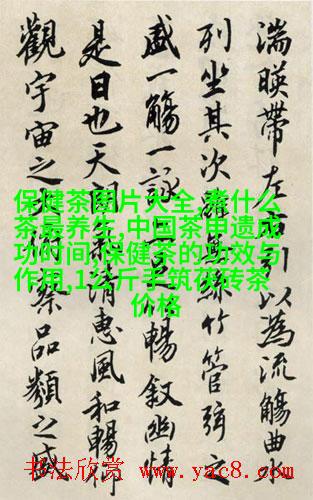 湍暎帶左右引以為流觴曲
列坐其次雖無絲竹管弦之
盛一觴一詠暢叙幽情
是日也天清惠風和暢仰
觀宇宙之察品類之盛
保健茶图片大全,煮什么
茶最养生,中国茶申遗成
功时间,保健茶的功效与
作用,1公斤手筑茯砖茶
价格
书法欣赏 www.yac8.com